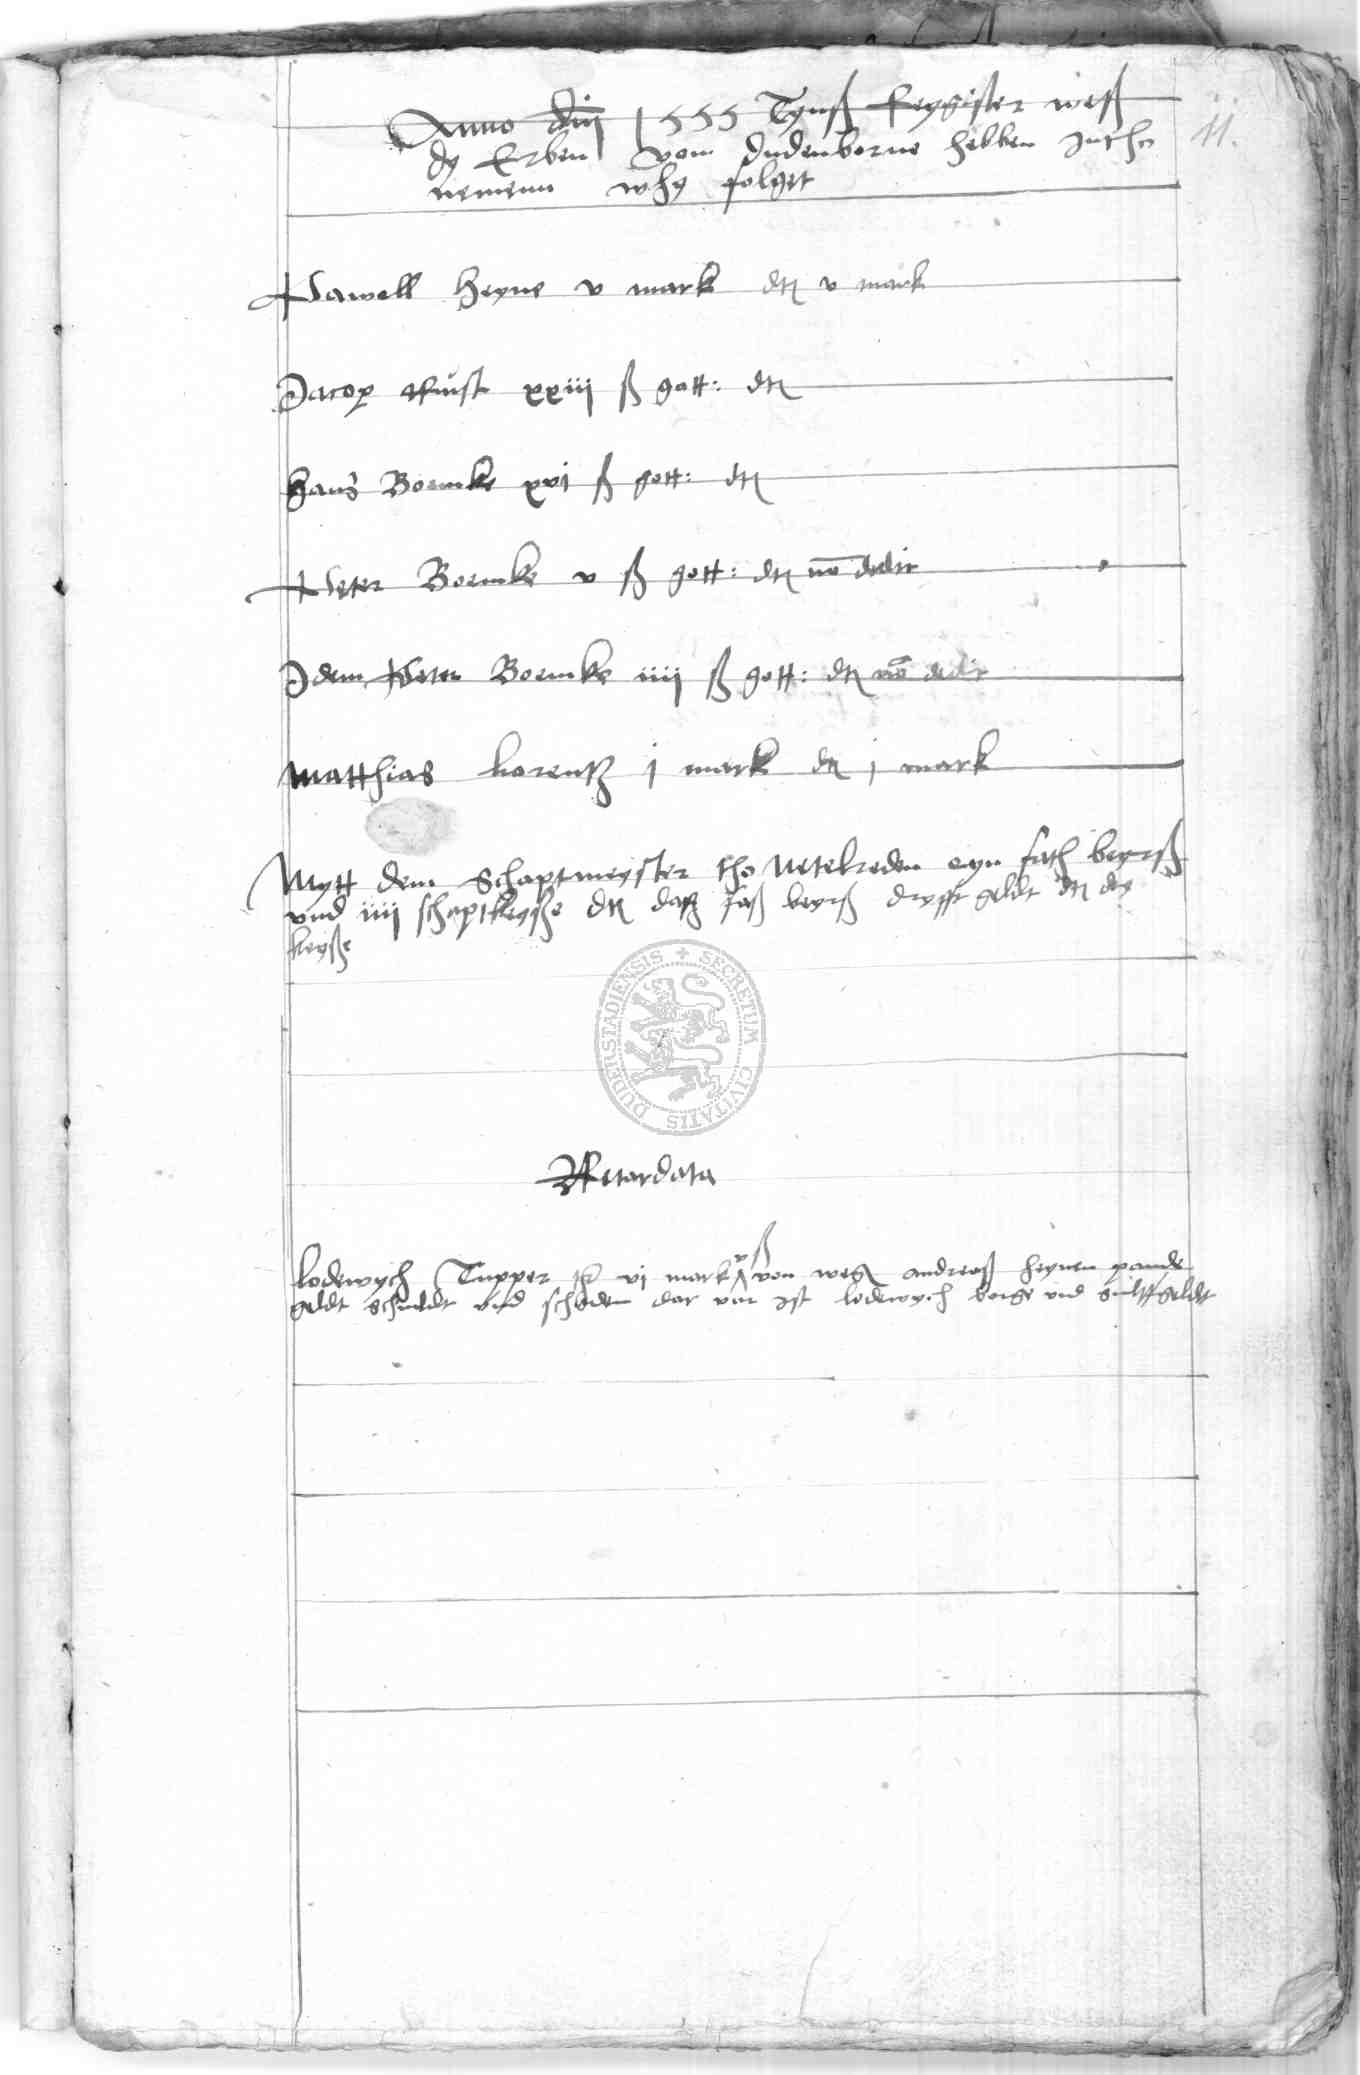 Anno dm̄ 1555 Tynß Reygister weß
dy Erben vom dudenborne hebben Intho
nemenn why folget
11.
Pawell Heyne v mark dt v mark
Jacop Kunst xxiij ß gott: dt
Hans Boemke xvj ß gott: dt
Peter Boemke v ß gott: dt no dedit
Idem Peter Boemke iiij ß gott: dt no dedit
Matthias Lorentz j mark dt j mark
Mytt dem Schaptmeyster tho Netelreden eyn fath beyrß
vnd iiij schaptkeyße dt datz faß beyrß dryfft geldt dt dry
keyße
SECRETUM CIVITATIS DUDERSTADIENSIS
Retardata
lodewych Tupper vj mark v ß von wegen andreaß heynen pande
geldt schuldt vnd schaden dar vor ist lodewych borge vnd